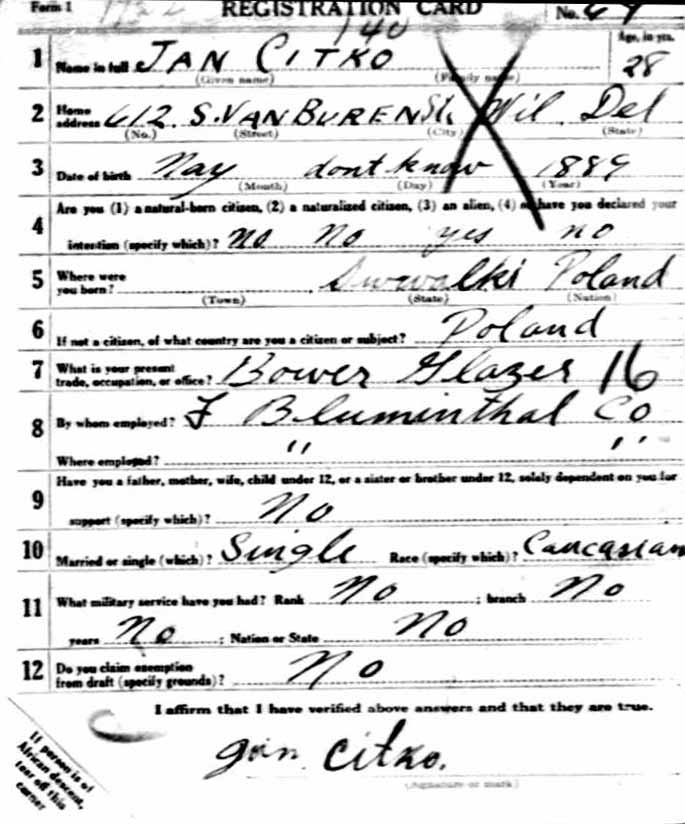 Form 1 REGISTRATION CARD No.
140
1 Name in full JAN CITKO Age, in yrs. 28
(Given name) (Family name)
2 Home address 612 S. VAN BUREN St. Wil. Del
(No.) (Street) (City) (State)
3 Date of birth May dont know 1889
(Month) (Day) (Year)
4 Are you (1) a natural-born citizen, (2) a naturalized citizen, (3) an alien, (4) or have you declared your
intention (specify which)? no No yes no
5 Where were you born? Suwalki Poland
(Town) (State) (Nation)
6 If not a citizen, of what country are you a citizen or subject? Poland
7 What is your present trade, occupation, or office? Bower Glazer 16
8 By whom employed? F Bluminthal Co
Where employed? " "
9 Have you a father, mother, wife, child under 12, or a sister or brother under 12, solely dependent on you for
support (specify which)? No
10 Married or single (which)? Single Race (specify which)? Caucasian
11 What military service have you had? Rank No ; branch No
years No ; Nation or State No
12 Do you claim exemption from draft (specify grounds)? No
I affirm that I have verified above answers and that they are true.
Jan Citko.
(Signature or mark)
If person is of
African descent,
tear off this
corner